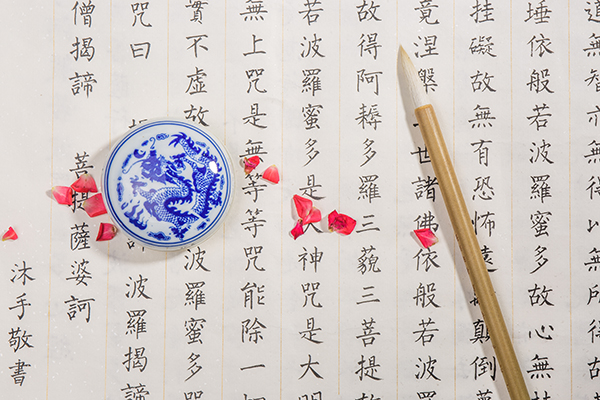 道無智亦無得以無所得故
埵依般若波羅蜜多故心無
掛礙故無有恐怖遠顛倒夢
竟涅槃世諸佛依般若波
故得阿耨多羅三藐三菩提故
若波羅蜜多是大神咒是大明
無上咒是無等等咒能除一
實不虛故波羅蜜多咒
咒曰波羅揭諦
僧揭諦 菩提薩婆訶
沐手敬書